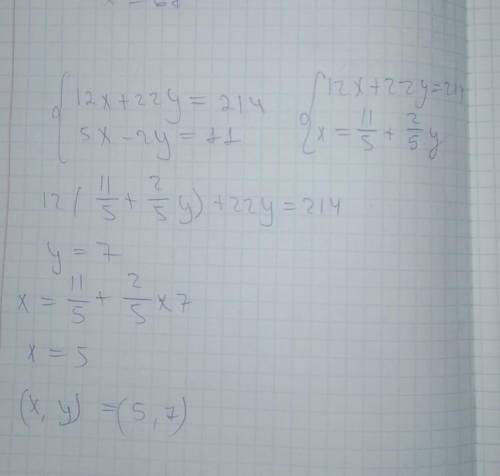 12x+22y=214
5x-2y=11
12x+22y=214
x=11/5+2/5y
12(11/5+2/5y)+22y=214
y=7
x=11/5+2/5x7
x=5
(x,y)=(5,7)